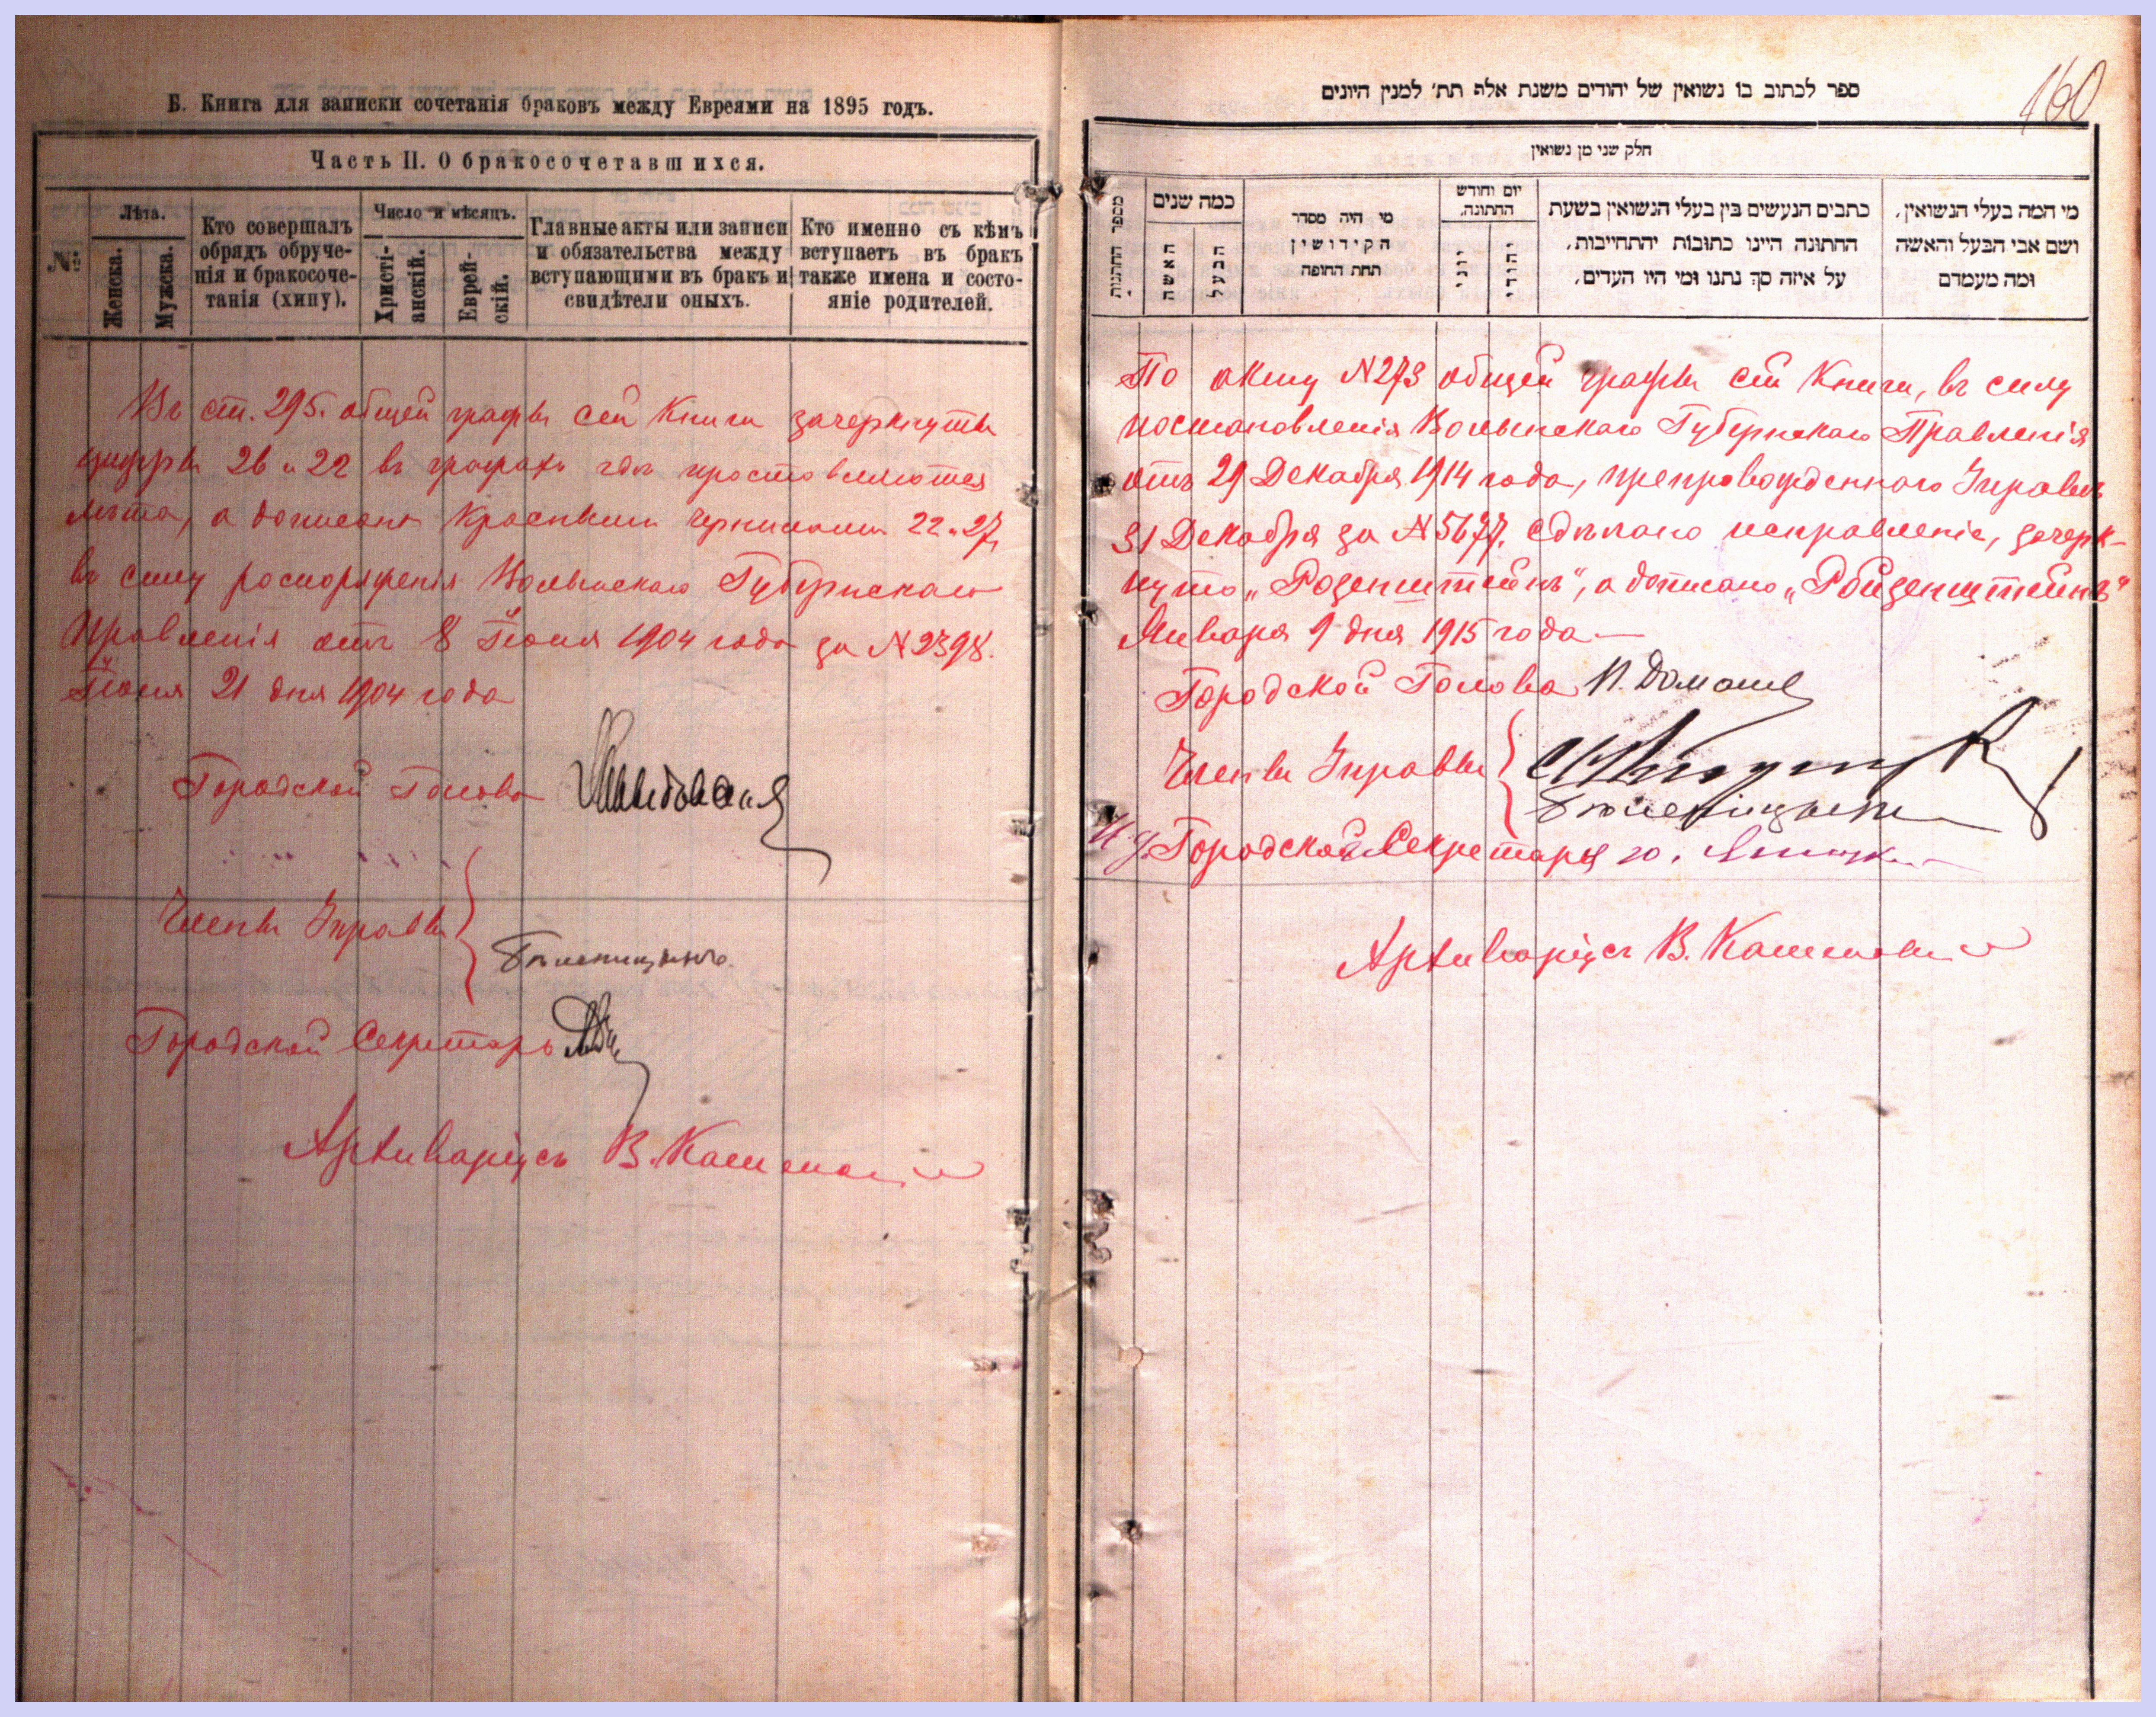 Б. Книга для записки сочетанія браковъ между Евреями на 1895 годъ.
Часть II. О бракосочетавшихся.
№
Лѣта.
Женска.
Мужеска.
Кто совершалъ
обрядъ обруче-
нія и бракосоче-
танія (хипу).
Число и мѣсяцъ.
Христі-
анскій.
Еврей-
скій.
Главные акты или записи
и обязательства между
вступающими въ бракъ и
свидѣтели оныхъ.
Кто именно съ кѣмъ
вступаетъ въ бракъ
также имена и состо-
яніе родителей.
Въ ст. 295. общей графы сей Книги зачеркнуты
цифры 26 и 22 въ графахъ гдѣ проставляются
лѣта, а дописаны красными чернилами 22 и 27,
въ силу распоряженія Волынскаго Губернскаго
Правленія отъ 8 Іюня 1904 года за N 2398.
Іюня 21 дня 1904 года
Городской Голова
Члены Управы
Городской Секретарь
Архиваріусъ В.
160
ספר לכתוב בו נשואין של יהודים משנת אלף תת׳ למנין היונים
חלק שני מן נשואין
מספר החתונות
כמה שנים
האשה
הבעל
מי היה מסדר
הקידושין
תחת החופה
יום וחודש
החתונה.
יוני
יהודי
כתבים הנעשים בין בעלי הנשואין בשעת
החתונה היינו כתובות יהתחייבות,
על איזה סך נתנו ומי היו העדים,
מי המה בעלי הנשואין,
ושם אבי הבעל והאשה
ומה מעמדם
По акту N 273 общей графы сей Книги, въ силу
постановленія Волынскаго Губернскаго Правленія
отъ 29 Декабря 1914 года, препровожденнаго Управѣ
31 Декабря за N 5677. сдѣлано исправленіе, зачерк-
нуто „Розенштейнъ", а дописано „Ройзенштейнъ"
Января 9 дня 1915 года —
Городской Голова
Члены Управы
И. д. Городского Секретаря
Архиваріусъ В.